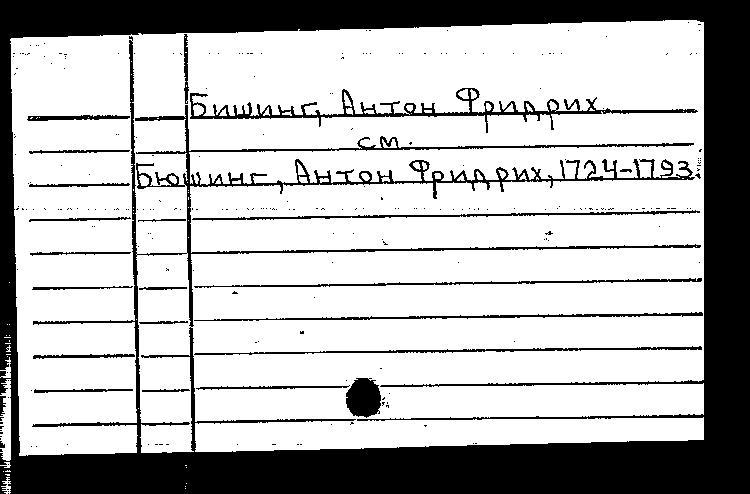 Бишинг, Антон Фридрих
см.
Бюшинг, Антон Фридрих, 1724-1793.